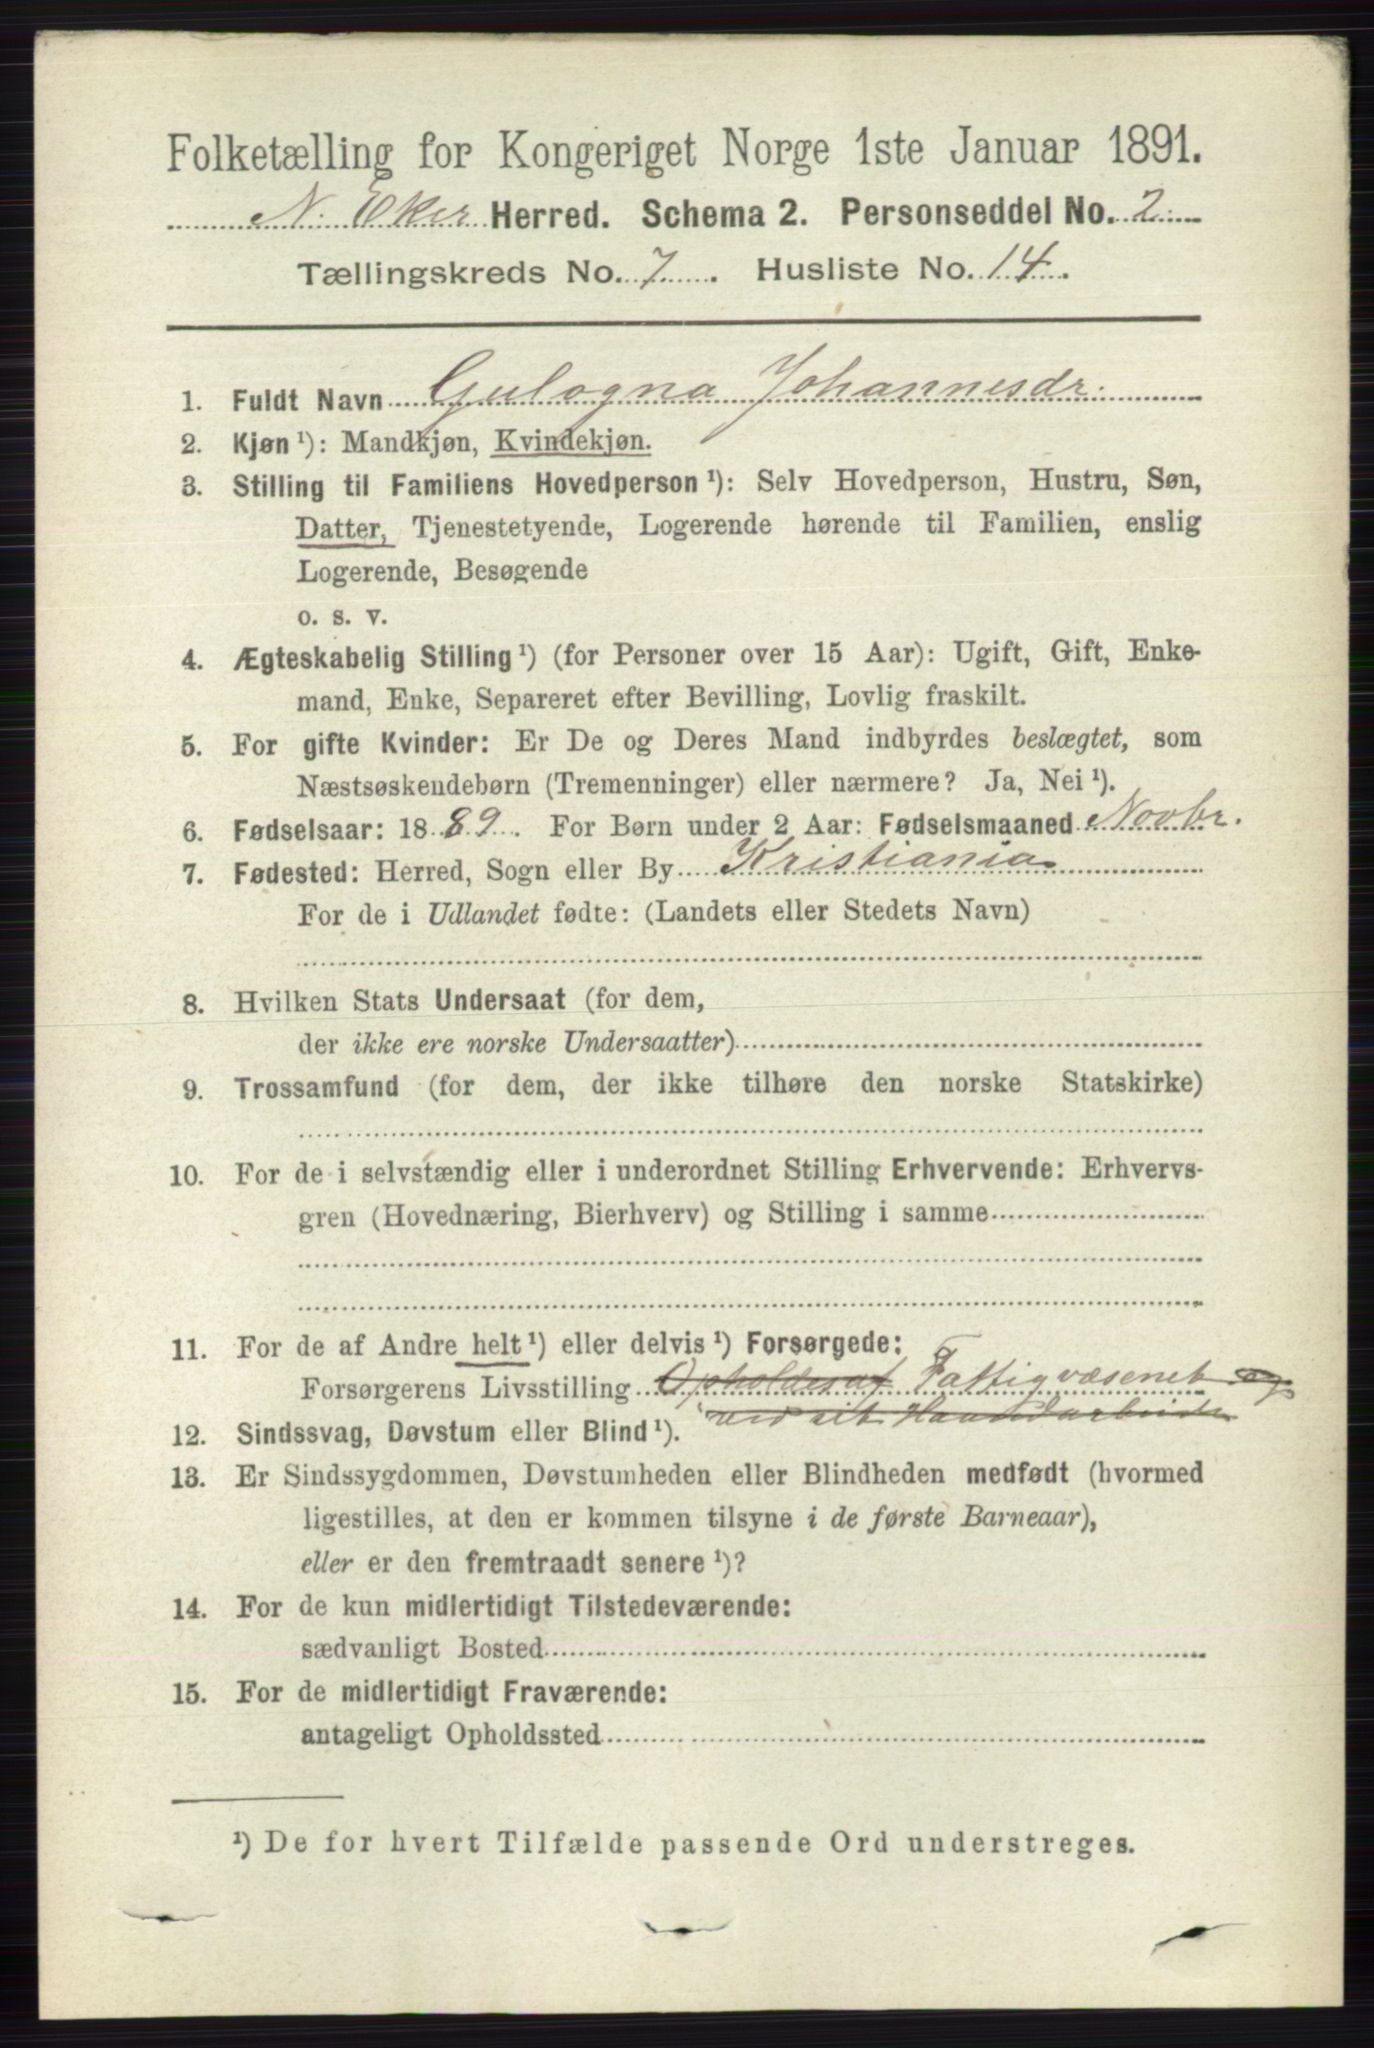 Folketælling for Kongeriget Norge 1ste Januar 1891.
N. Eker Herred. Schema 2. Personseddel No. 2
Tællingskreds No. 7. Husliste No. 14.
1. Fuldt Navn Gulogna Johannesdr.
2. Kjøn ¹): Mandkjøn, Kvindekjøn.
3. Stilling til Familiens Hovedperson ¹): Selv Hovedperson, Hustru, Søn,
Datter, Tjenestetyende, Logerende hørende til Familien, enslig
Logerende, Besøgende
o. s. v.
4. Ægteskabelig Stilling ¹) (for Personer over 15 Aar): Ugift, Gift, Enke-
mand, Enke, Separeret efter Bevilling, Lovlig fraskilt.
5. For gifte Kvinder: Er De og Deres Mand indbyrdes beslægtet, som
Næstsøskendebørn (Tremenninger) eller nærmere? Ja, Nei ¹).
6. Fødselsaar: 1889. For Børn under 2 Aar: Fødselsmaaned Novbr.
7. Fødested: Herred, Sogn eller By Kristiania
For de i Udlandet fødte: (Landets eller Stedets Navn)
8. Hvilken Stats Undersaat (for dem,
der ikke ere norske Undersaatter)
9. Trossamfund (for dem, der ikke tilhøre den norske Statskirke)
10. For de i selvstændig eller i underordnet Stilling Erhvervende: Erhvervs-
gren (Hovednæring, Bierhverv) og Stilling i samme
11. For de af Andre helt ¹) eller delvis ¹) Forsørgede:
Forsørgerens Livsstilling Opholdes af Fattigvæsenet og
ved sit Haandarbeide
12. Sindssvag, Døvstum eller Blind ¹).
13. Er Sindssygdommen, Døvstumheden eller Blindheden medfødt (hvormed
ligestilles, at den er kommen tilsyne i de første Barneaar),
eller er den fremtraadt senere ¹)?
14. For de kun midlertidigt Tilstedeværende:
sædvanligt Bosted
15. For de midlertidigt Fraværende:
antageligt Opholdssted
¹) De for hvert Tilfælde passende Ord understreges.